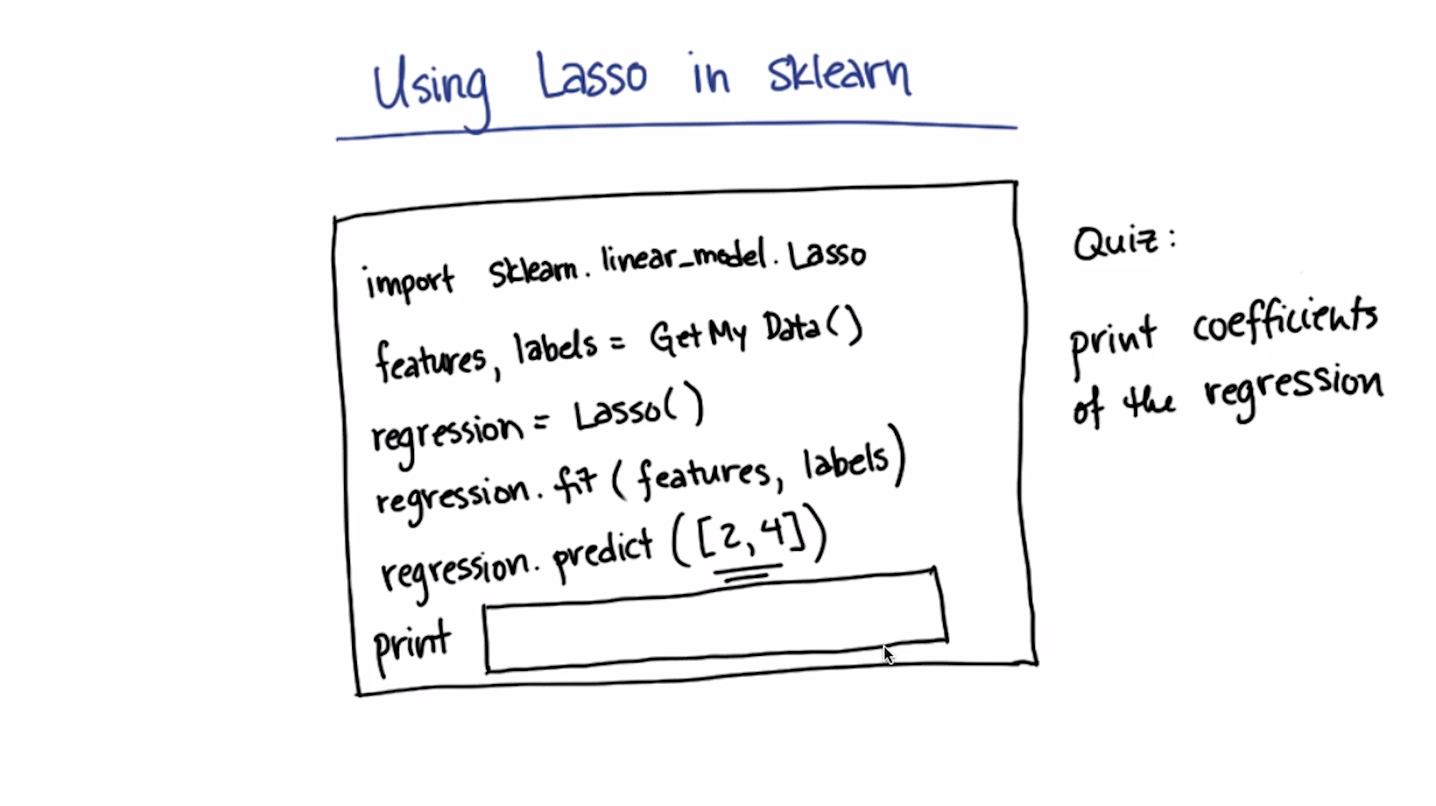 Using Lasso in sklearn
import sklearn.linear_model.Lasso
features, labels = GetMyData()
regression = Lasso()
regression.fit(features, labels)
regression.predict([2,4])
print
Quiz:
print coefficients
of the regression